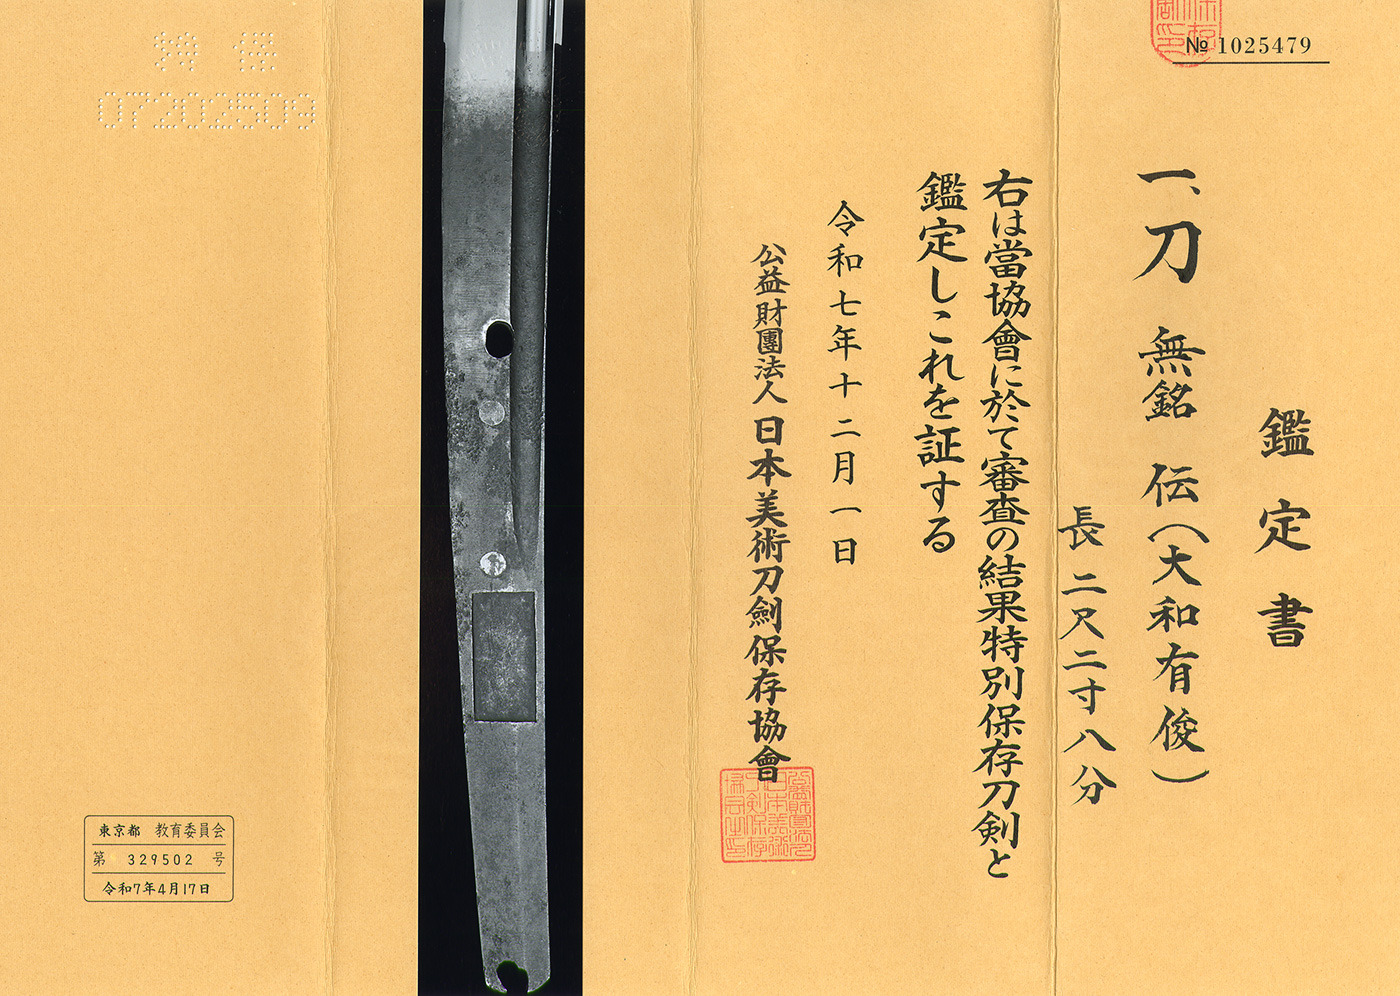 № 1025479
鑑定書
一、刀 無銘 伝(大和有俊)
長二尺二寸八分
右は當協會に於て審査の結果特別保存刀剣と
鑑定しこれを証する
令和七年十二月一日
公益財團法人 日本美術刀劍保存協會
07202509
東京都 教育委員会
第 329502 号
令和7年4月17日